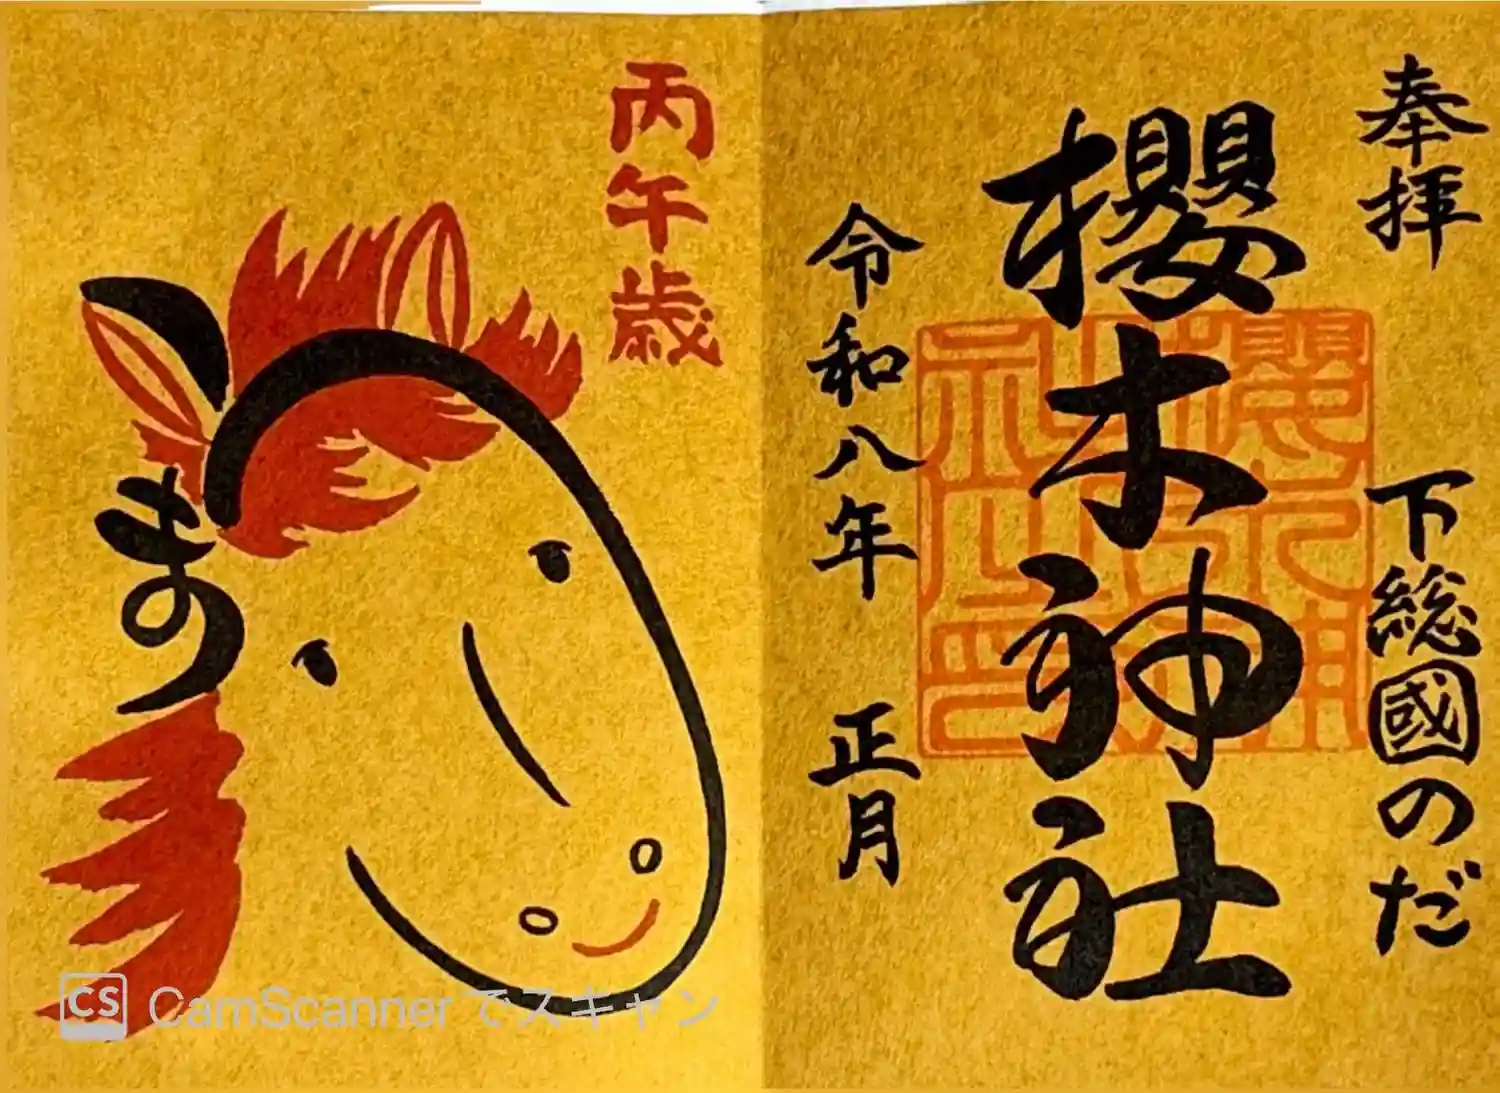 奉拝
下総國のだ
櫻木神社
令和八年 正月
丙午歳
CS CamScanner でスキャン